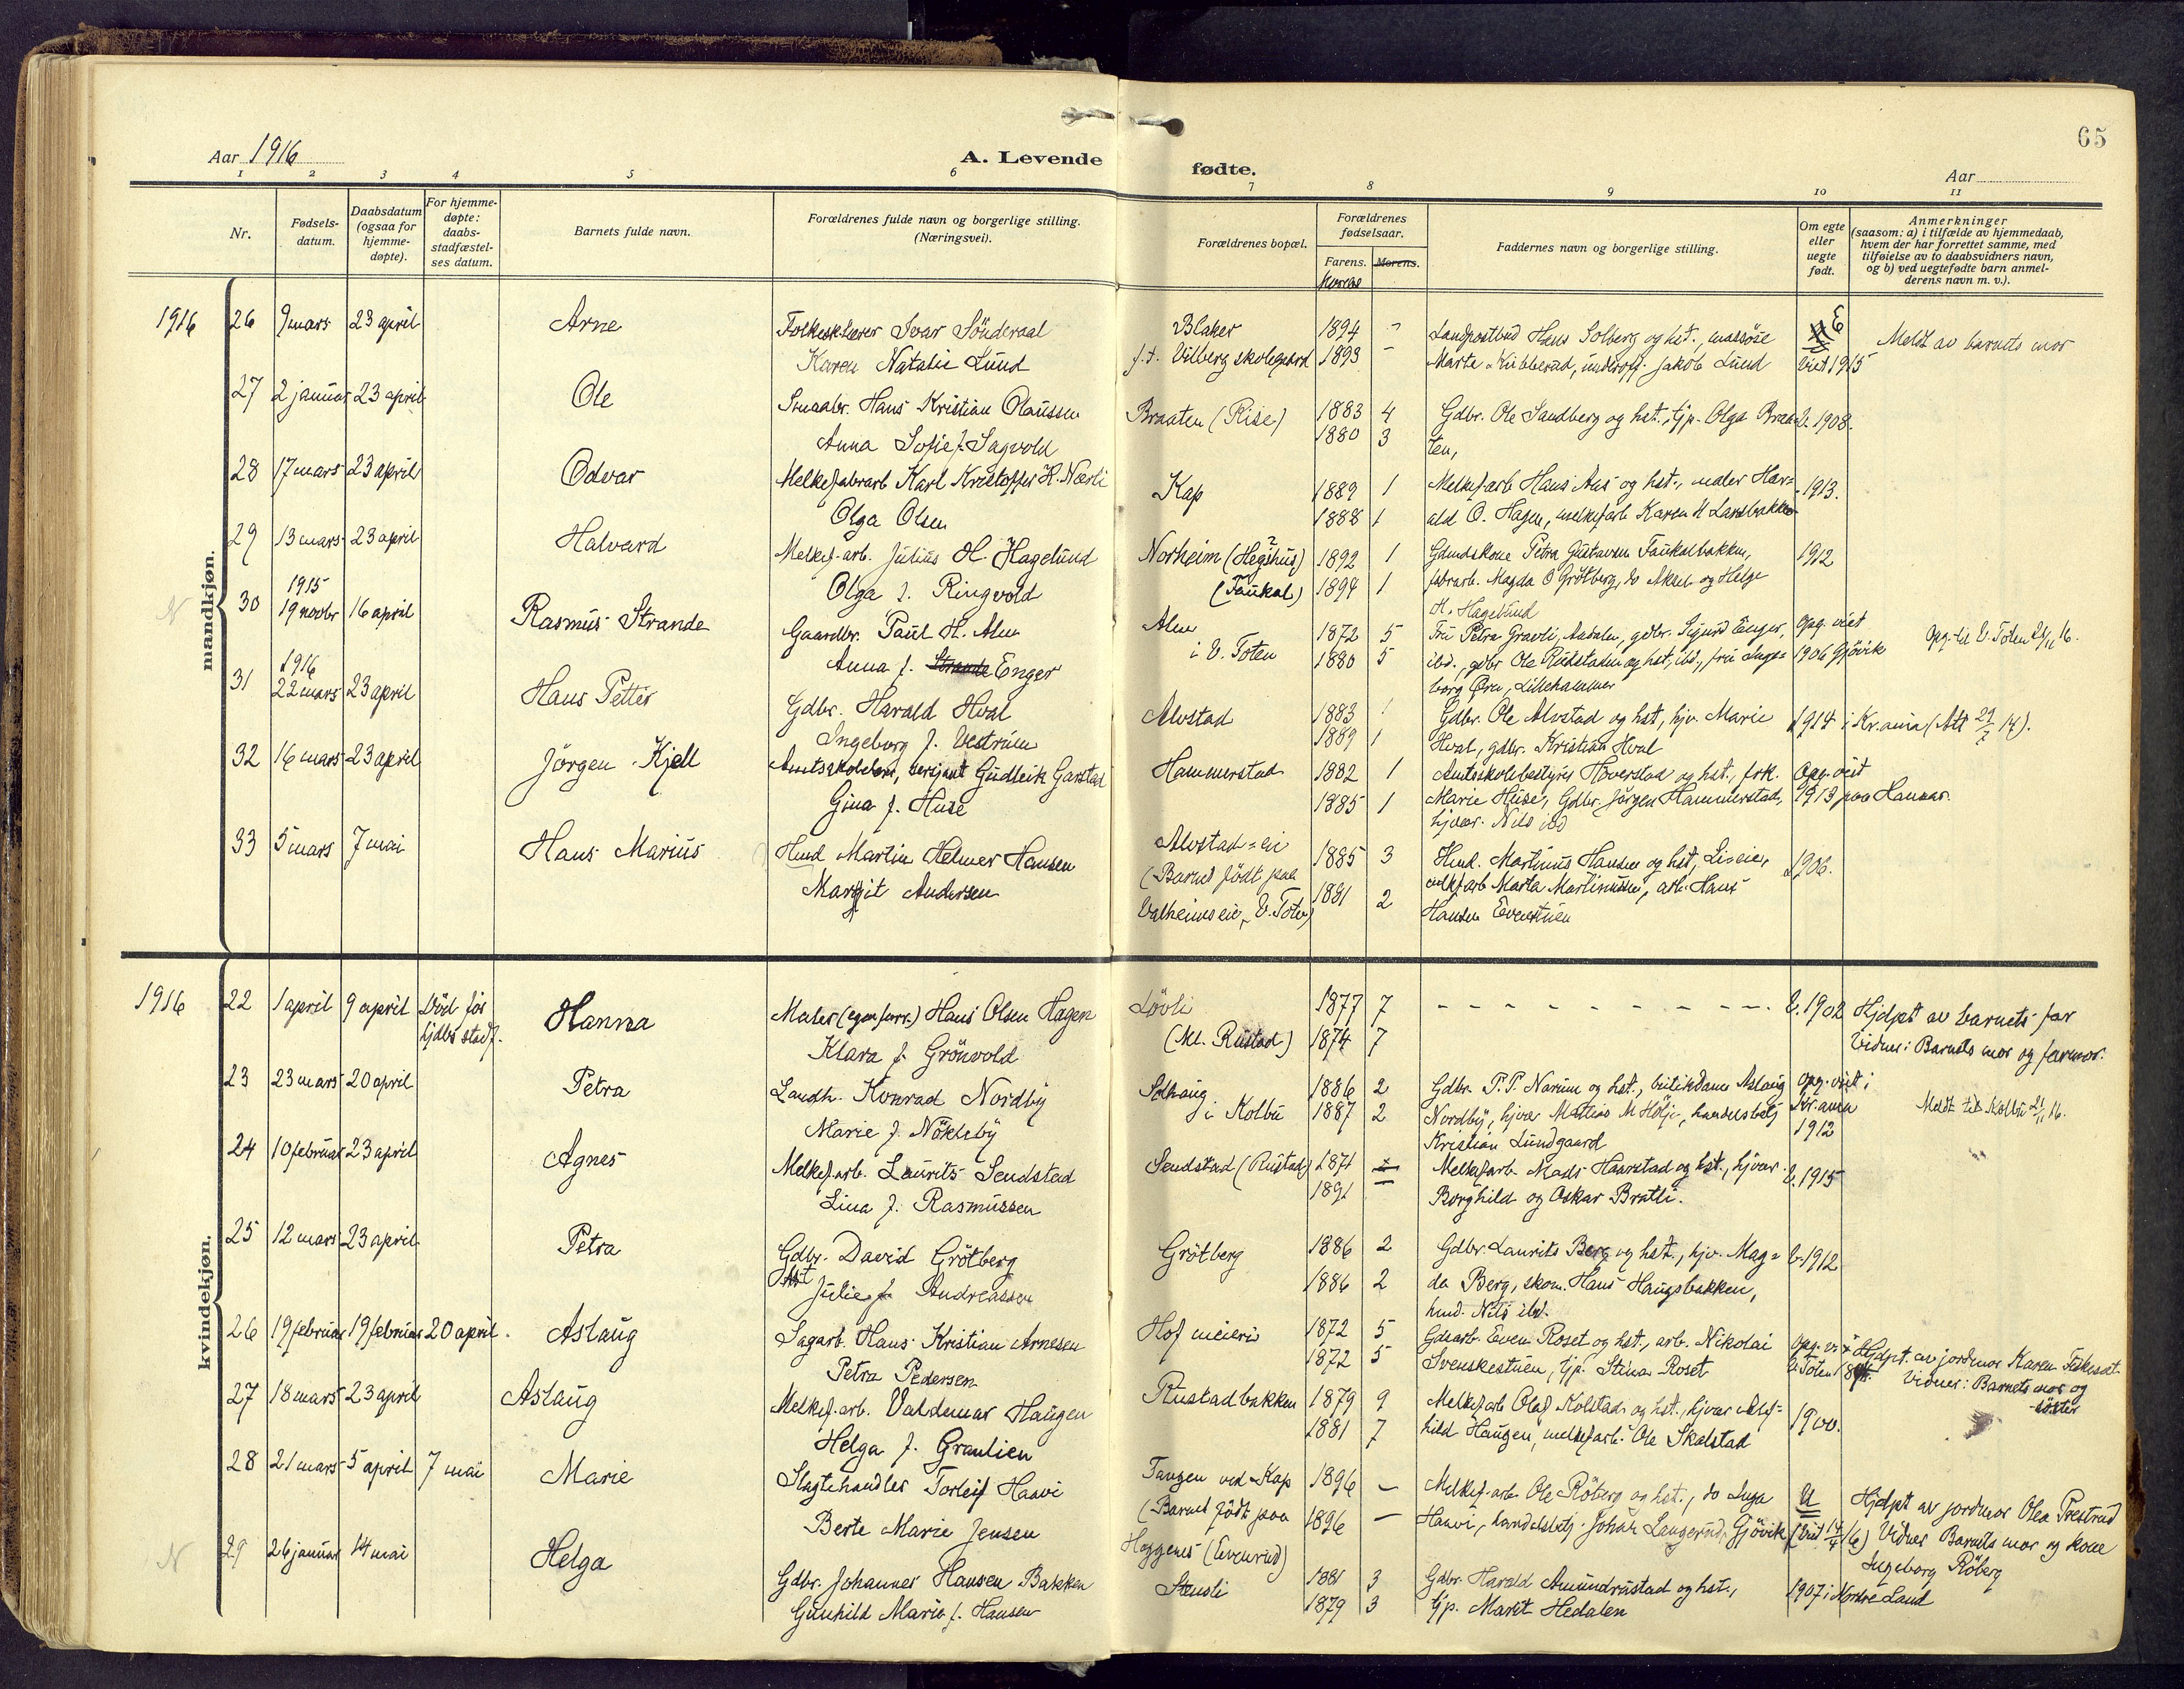 65
Aar 1916
A. Levende fødte.
Aar
1 2 3 4 5 6 7 8 9 10 11
Nr.
Fødsels-datum.
Daabsdatum (ogsaa for hjemme-døpte).
For hjemme-døpte: daabs-stadfæstel-ses datum.
Barnets fulde navn.
Forældrenes fulde navn og borgerlige stilling. (Næringsvei).
Forældrenes bopæl.
Forældrenes fødselsaar.
Farens. Morens.
Morens
Faddernes navn og borgerlige stilling.
Om egte eller uegte født.
Anmerkninger (saasom: a) i tilfælde av hjemmedaab, hvem der har forrettet samme, med tilføielse av to daabsvidners navn, og b) ved uegtefødte barn anmel-derens navn m. v.).
mandkjøn.
1916 26 9 mars 23 april Arne Folkesk.lærer Ivar Sönderaal Blaker 1894 - Landpostbud Hans Solberg og hst., E Meldt av barnets mor
Karen Natalie Lund f.t. Vilberg skolegaard 1893 - Marte Kibberud, underoff. Jakob Lund Viet 1915
27 2 januar 23 april Ole Smaabr. Hans Kristian Olaussen Braaten (Rise) 1883 4 Gdbr. Ole Sandberg og hst., tjp. Olga Braa- V. 1908.
Anna Sofie f. Sagvold 1880 3 ten,
28 17 mars 23 april Odvar Melkefabrarb Karl Kristoffer H. Nærli Kap 1889 1 Melkef.arb Hans Aas og hst., maler Har- 1913.
Olga Olsen 1888 1 ald O. Hagen, melkef.arb Karen H Landbakken
29 13 mars 23 april Halvard Melkef.arb. Julius H. Hagelund Norheim (Hegshus) 1892 1 Gdmdskone Petra Gustavsen Faukalbakken, 1912
Olga f. Ringvold (Faukal) 1894 1 fabrarb. Magda O Grötberg, do Aksel og Helge
H. Hagelund
N 30 1915 19 novbr 16 april Rasmus Strande Gaardbr. Paul H. Alm Alm 1872 5 Fru Petra Gravli, Aadalen, gdbr. Sigurd Enger, Opg. viet Opg. til V. Toten 21/11 16.
Anna f. Enger i V. Toten 1880 5 ibd., gdbr Ole Rudstaden og hst, ibd., fru Inge- 1906 Gjövik
borg Ørn, Lillehammer
31 1916 22 mars 23 april Hans Petter Gdbr. Harald Hval Alvstad 1883 1 Gdbr. Ole Alvstad og hst, hjv. Marie 1914 i Kr.ania (Att 29/7 14).
Ingeborg f. Vestrum 1889 1 Hval, gdbr. Kristian Hval
32 16 mars 23 april Jörgen Kjell Amtsskolelærer, sersjant Gudleik Garstad Hammerstad 1882 1 Amtsskolebestyrer Höverstad og hst., frk. Opg. viet
Gina f. Huse 1885 1 Marie Huse, Gdbr. Jörgen Hammerstad, 1913 paa Hamar.
hjvær. Nils ibd
33 5 mars 7 mai Hans Marius Hmd Martin Helmer Hansen Alvstad-ei 1885 3 Hmd. Martinus Hansen og hst, Liseie, 1906.
Margit Andersen (Barnet födt paa 1881 2 melkf.arb Marta Martinussen, arb. Hans
Valheimseie, V. Toten) Hansen Evenstuen
kvindekjøn.
1916 22 1 april 9 april Död för hjdbs stadf. Hanna Maler (egen forr.) Hans Olsen Hagen Lövli 1877 7 - - - - - - - - - V. 1902 Hjdpt av barnets far
Klara f. Grönvold (Ml. Rustad) 1874 7 Vidner: Barnets mor og farmor.
23 23 mars 20 april Petra Landh. Konrad Nordby Solhaug 1886 2 Gdbr. P. P. Narum og hst., butikdame Aslaug Opg. viet i
Marie f. Nökleby i Kolbu 1887 2 Nordby, hjvær Mattias M Hölje, handelsbetj Kr.ania Meldt til Kolbu 21/11 16.
Kristian Lundgaard 1912
24 10 februar 23 april Agnes Melkef.arb. Laurits Sendstad Sendstad (Rustad) 1871 Melkef.arb. Mads Haarstad og hst., hjvær. V. 1915
Lina f. Rasmussen 1891 - Borghild og Oskar Bratli.
25 12 mars 23 april Petra Gdbr. David Grötberg Grötberg 1886 2 Gdbr. Laurits Berg og hst., hjv. Mag- V. 1912
Julie f. Andreassen 1886 2 da Berg, skom. Hans Haugsbakken,
hmd. Nils ibd.
26 19 februar 19 februar 20 april. Aslaug Sagarb. Hans Kristian Arnesen Hof meieri 1872 5 Gdsarb. Even Roset og hst., arb. Nikolai Opg. vi i Hjdpt. av jordmor Karen Fiskesat
Petra Pedersen 1872 5 Svenskestuen, tjp. Stina Roset V. Toten Vidner: Barnets mor og
söster
27 18 mars 23 april Aslaug Melkef.arb. Valdemar Haugen Rustadbakken 1879 9 Melkef.arb Olaf Kolstad og hst., hjvær Alf-
Helga f. Graulien 1881 7 hild Haugen, melkef.arb. Ole Skolstad 1900.
28 21 mars 5 april 7 mai Marie Slagtehandler Torleif Haavi Tangen ved Kap 1896 - Melkef.arb Ole Röberg og hst., do Inga U Hjdpt av jordmor Olea Prestrud
Berte Marie Jensen (Barnet födt paa 1896 - Haavi, handelsbetj. Johan Langerud, Gjövik (Viet 14/4 16) Vidner Barnets mor og kone
Haggenes (Evenrud) Ingeborg Röberg
N 29 26 januar 14 mai Helga Gdbr. Johannes Hansen Bakken Stensli 1881 3 Gdbr. Harald Amundrustad og hst.,
Gunhild Marie f. Hansen 1879 3 tjp. Marit Hedalen 1907 i Nordre Land